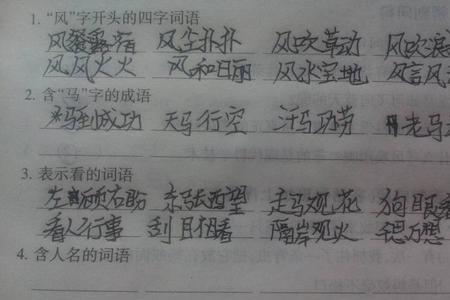 1. “风”字开头的四字词语
风餐露宿 风尘扑扑 风吹草动 风吹浪
风风火火 风和日丽 风水宝地 风言风
2. 含“马”字的成语
马到成功 天马行空 汗马功劳 老马
3. 表示看的词语
左顾右盼 东张西望 走马观花 狗眼看
看人行事 刮目相看 隔岸观火
4. 含人名的词语